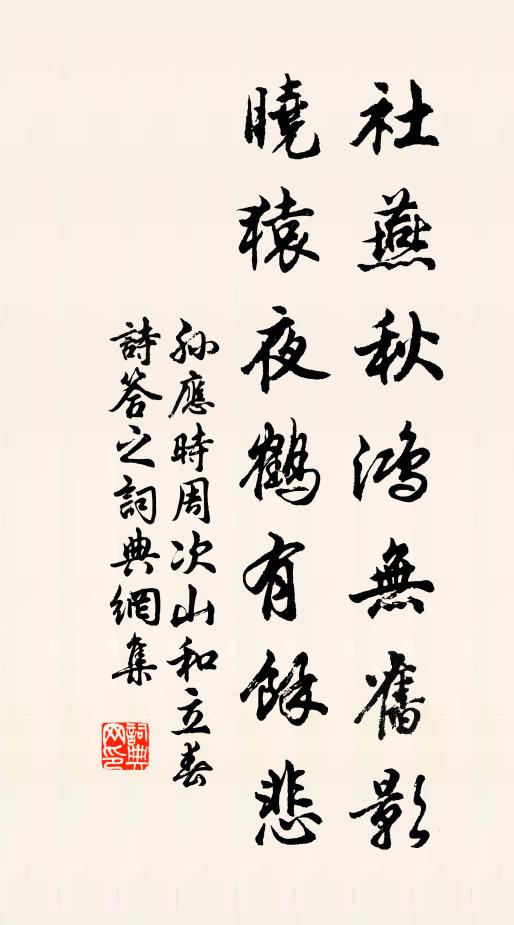 社燕秋鴻無舊影
曉猿夜鶴有餘悲
孫應時周次山和立春
詩答之詞典網集
詞典網印